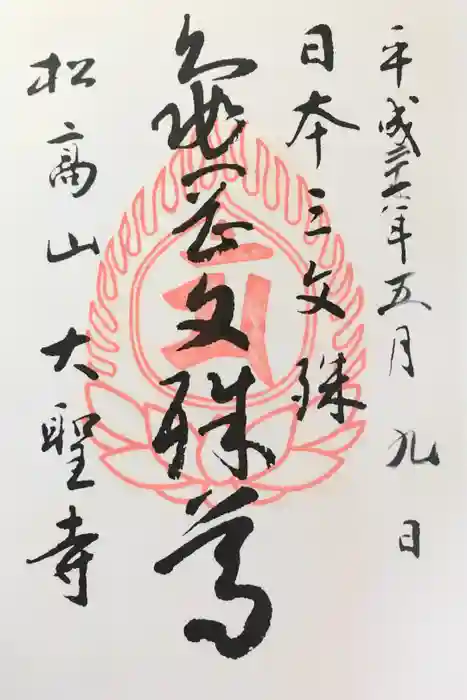 平成二十六年五月九日
日本三文殊
亀岡文殊尊
松高山 大聖寺